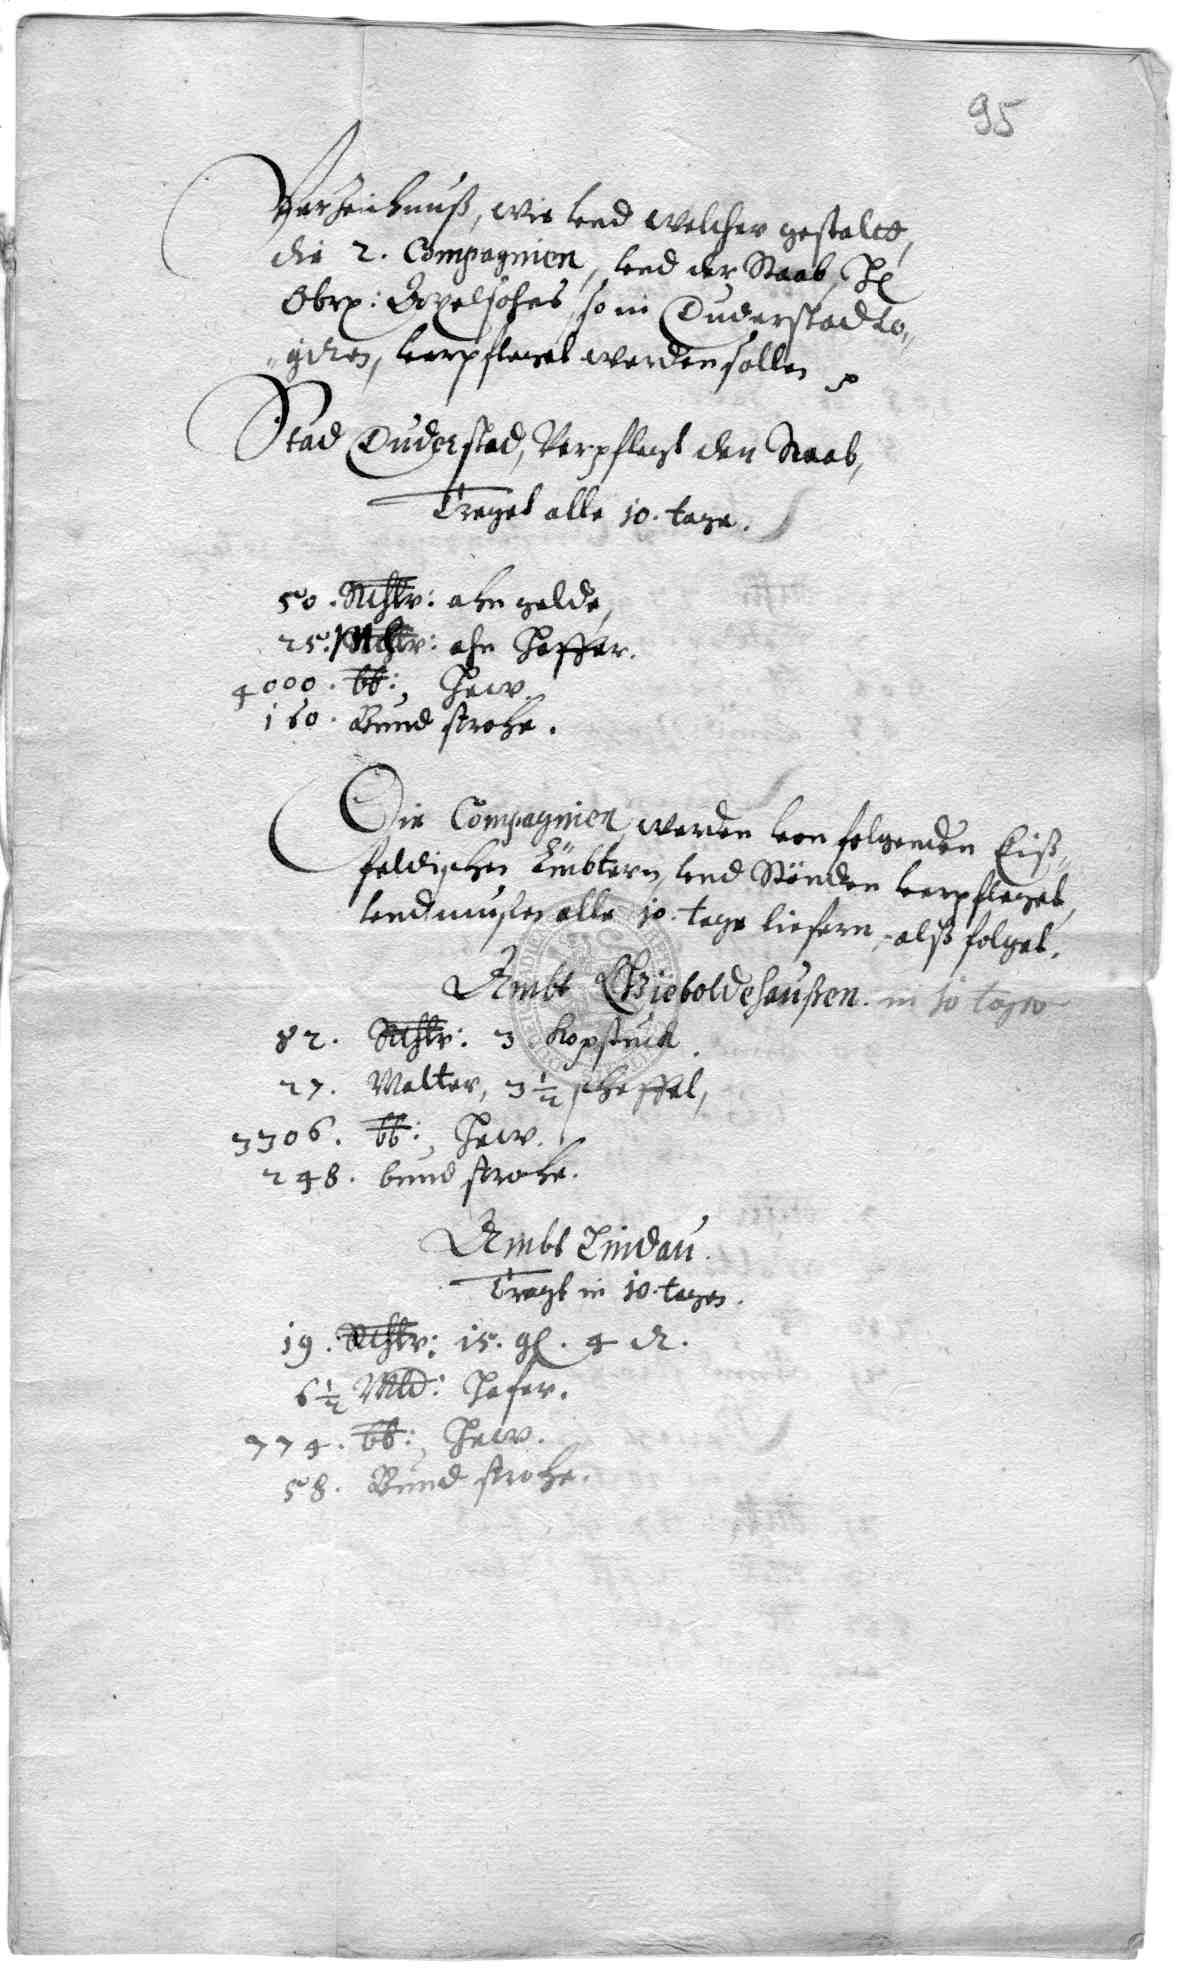 95
Verzeichnuß, wie vnd welcher gestaldt,
die 2. Compagnien, vnd der Staab, H
Obr: so in Duderstad lo„
„giren, verpfleget werden sollen
Stad Duderstad, Verpflegt den Staab,
Treget alle 10. tage.
50. Rthlr: ahn gelde,
25. Mltr: ahn Haffer.
4000. ℔: Hew.
160. Bund strohe.
Die Compagnien, werden von folgenden Eiß„
feldischen Embtern, vnd Stenden verpfleget,
vnd mußen alle 10. tage liefern, alß folget.
Ambt Gieboldehaußen. in 10 tagen
82. Rthlr: 3 kopstuck.
27. Malter, 3 1/2 scheffel,
3306. ℔: Hew.
248. bund strohe.
Ambt Lindau.
Tregt in 10. tagen.
19. Rthlr: 15. gl. 4 d.
6 1/2 Mld: Hafer.
774. ℔: Hew.
58. Bund strohe.